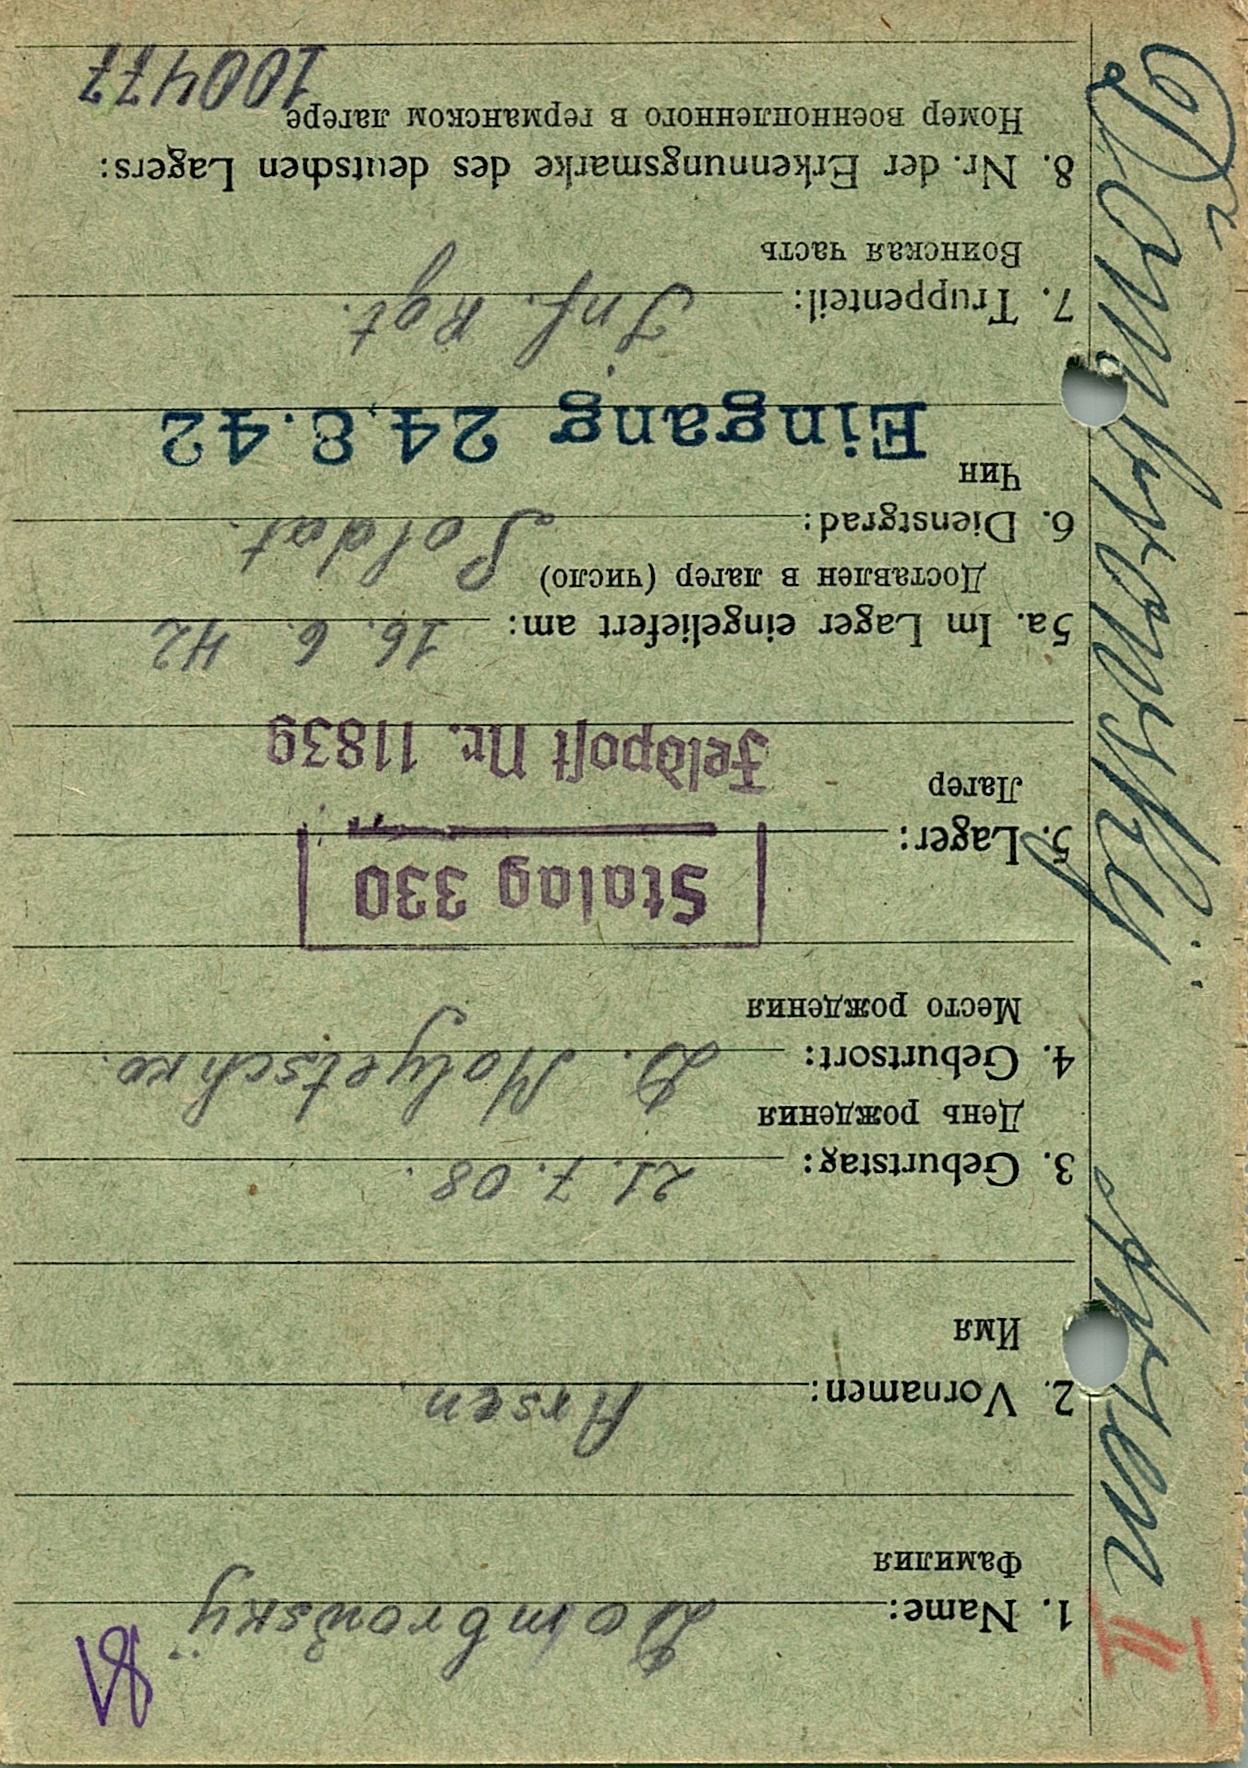 1. Name: Dombrowskÿ
Фамилия
2. Vornamen: Arsen.
Имя
3. Geburtstag: 21. 7. 08.
День рождения
4. Geburtsort: D. Molyetschko.
Место рождения
Stalag 330
5. Lager:
Лагер
Feldpost Nr. 11839
5a. Im Lager eingeliefert am: 16. 6. 42
Доставлен в лагер (число)
6. Dienstgrad: Soldat.
Чин
Eingang 24.8.42
7. Truppenteil: Inf. Rgt.
Воинская часть
8. Nr. der Erkennungsmarke des deutschen Lagers:
Номер военнопленного в германском лагере
100477
Dombrowskij Arsen
II